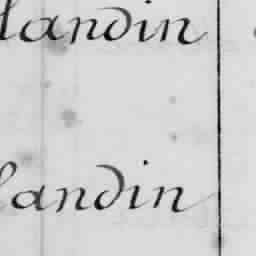 landin
landin